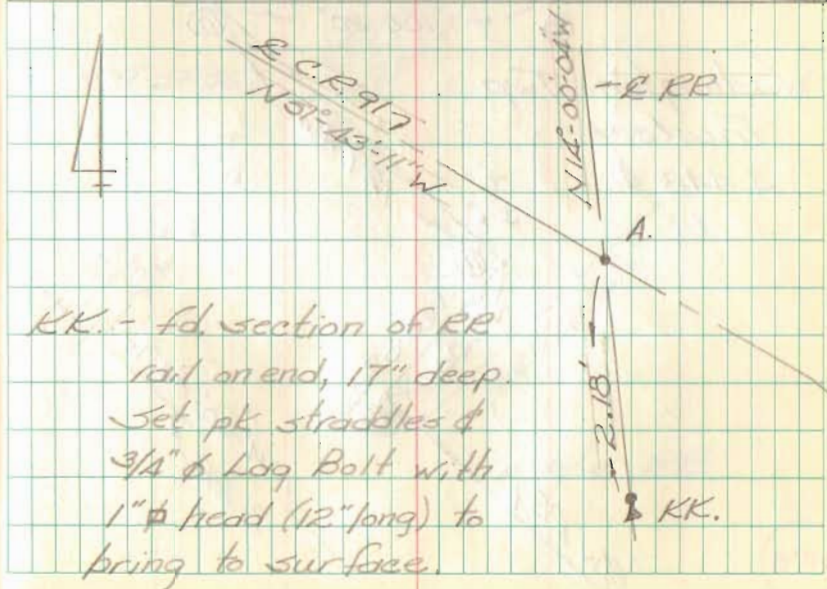 ℄ C.R. 917
N 51°-43'-11" W
N14°-00'-04"W
-℄ RR
A.
2.18'
KK. - fd. section of RR
rail on end, 17" deep.
Set pk straddles &
3/4" ϕ Lag Bolt with
1" ϕ head (12" long) to
bring to surface.
KK.